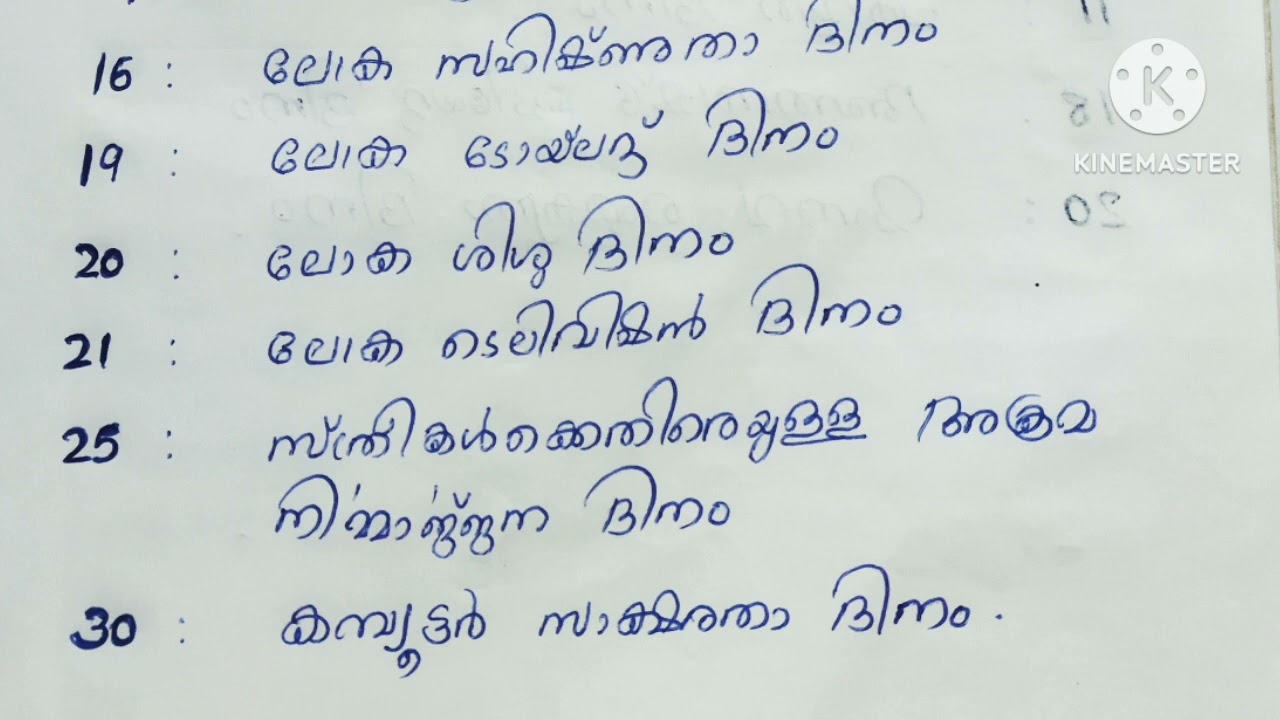 16 : ലോക സഹിഷ്ണുതാ ദിനം
19 : ലോക ടോയ്‌ലറ്റ് ദിനം
20 : ലോക ശിശു ദിനം
21 : ലോക ടെലിവിഷൻ ദിനം
25 : സ്ത്രീകൾക്കെതിരെയുള്ള അക്രമ
നിർമ്മാർജ്ജന ദിനം
30 : കമ്പ്യൂട്ടർ സാക്ഷരതാ ദിനം.
K
KINEMASTER